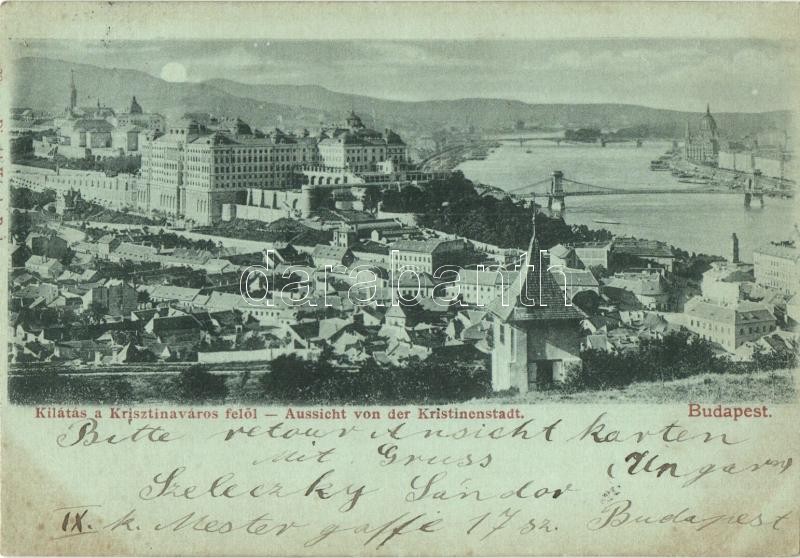 darabanth
Kilátás a Krisztinaváros felöl — Aussicht von der Kristinenstadt.
Budapest.
Bitte retour Ansicht karten
Mit Gruss (Ungarn)
Szeleczky Sándor
IX. k. Mester gaffe 17 sz. Budapest